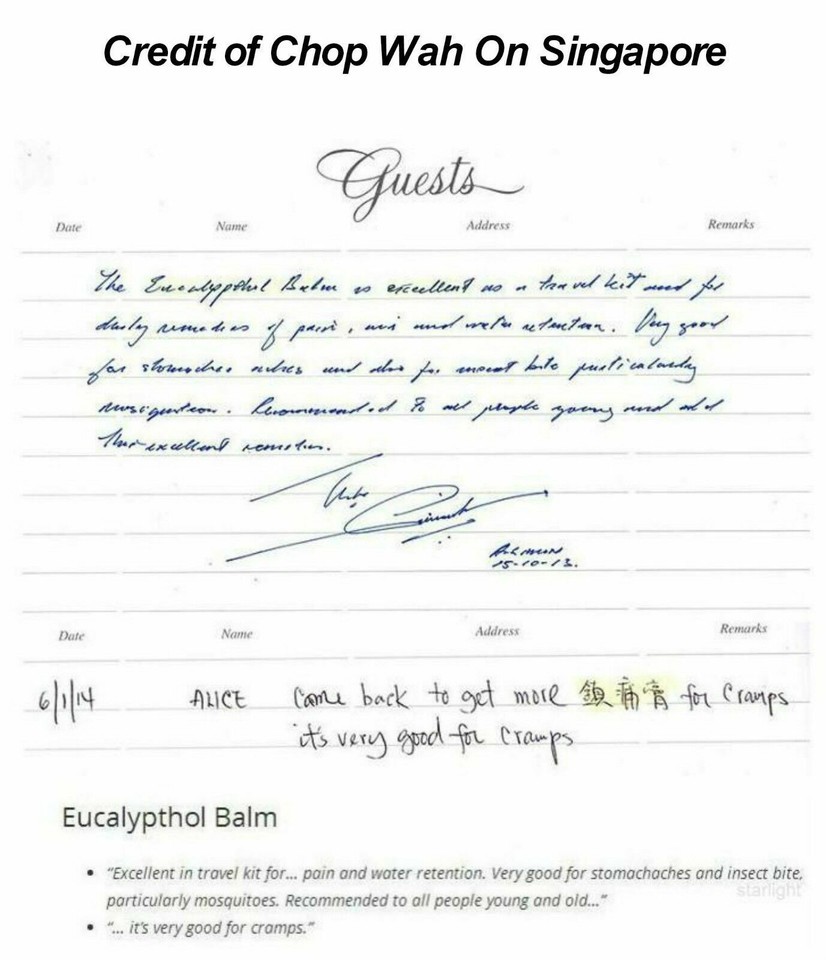 Credit of Chop Wah On Singapore
Guests
Date Name Address Remarks
The Eucalypthol Balm is excellent as a travel kit and for
daily remedies of pain, and water retention. Very good
for stomaches aches and also for insect bite particularly
Recommended to all people young and old
this excellent
15-10-13.
Date Name Address Remarks
6/1/14 ALICE Came back to get more 鎮痛膏 for cramps
it's very good for cramps
Eucalypthol Balm
• “Excellent in travel kit for... pain and water retention. Very good for stomachaches and insect bite,
particularly mosquitoes. Recommended to all people young and old...”
• “... it's very good for cramps.”
starlight